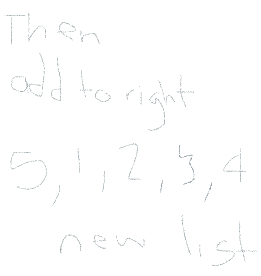 Then
add to right
5, 1, 2, 3, 4
new list